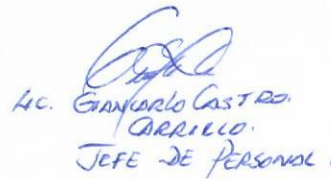 Lic. GIANCARLO CASTRO.
CARRILLO.
JEFE DE PERSONAL.